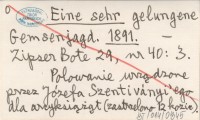 Eine sehr gelungene
Gemsenjagd. 1891. —
Zipser Bote 29, nr 40: 3.
Polowanie urządzone
przez Józefa Szentiványi'ego
dla arcyksiążąt (zastrzelono 12 kozic).